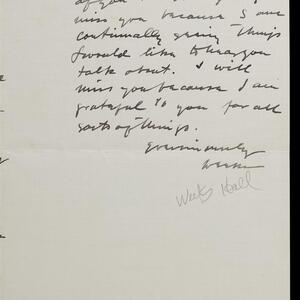 of you
miss you because I am
continually seeing things
I would like to hear you
talk about. I will
miss you because I am
grateful to you for all
sorts of things.
Ever sincerely
Weeks
Weeks Hall